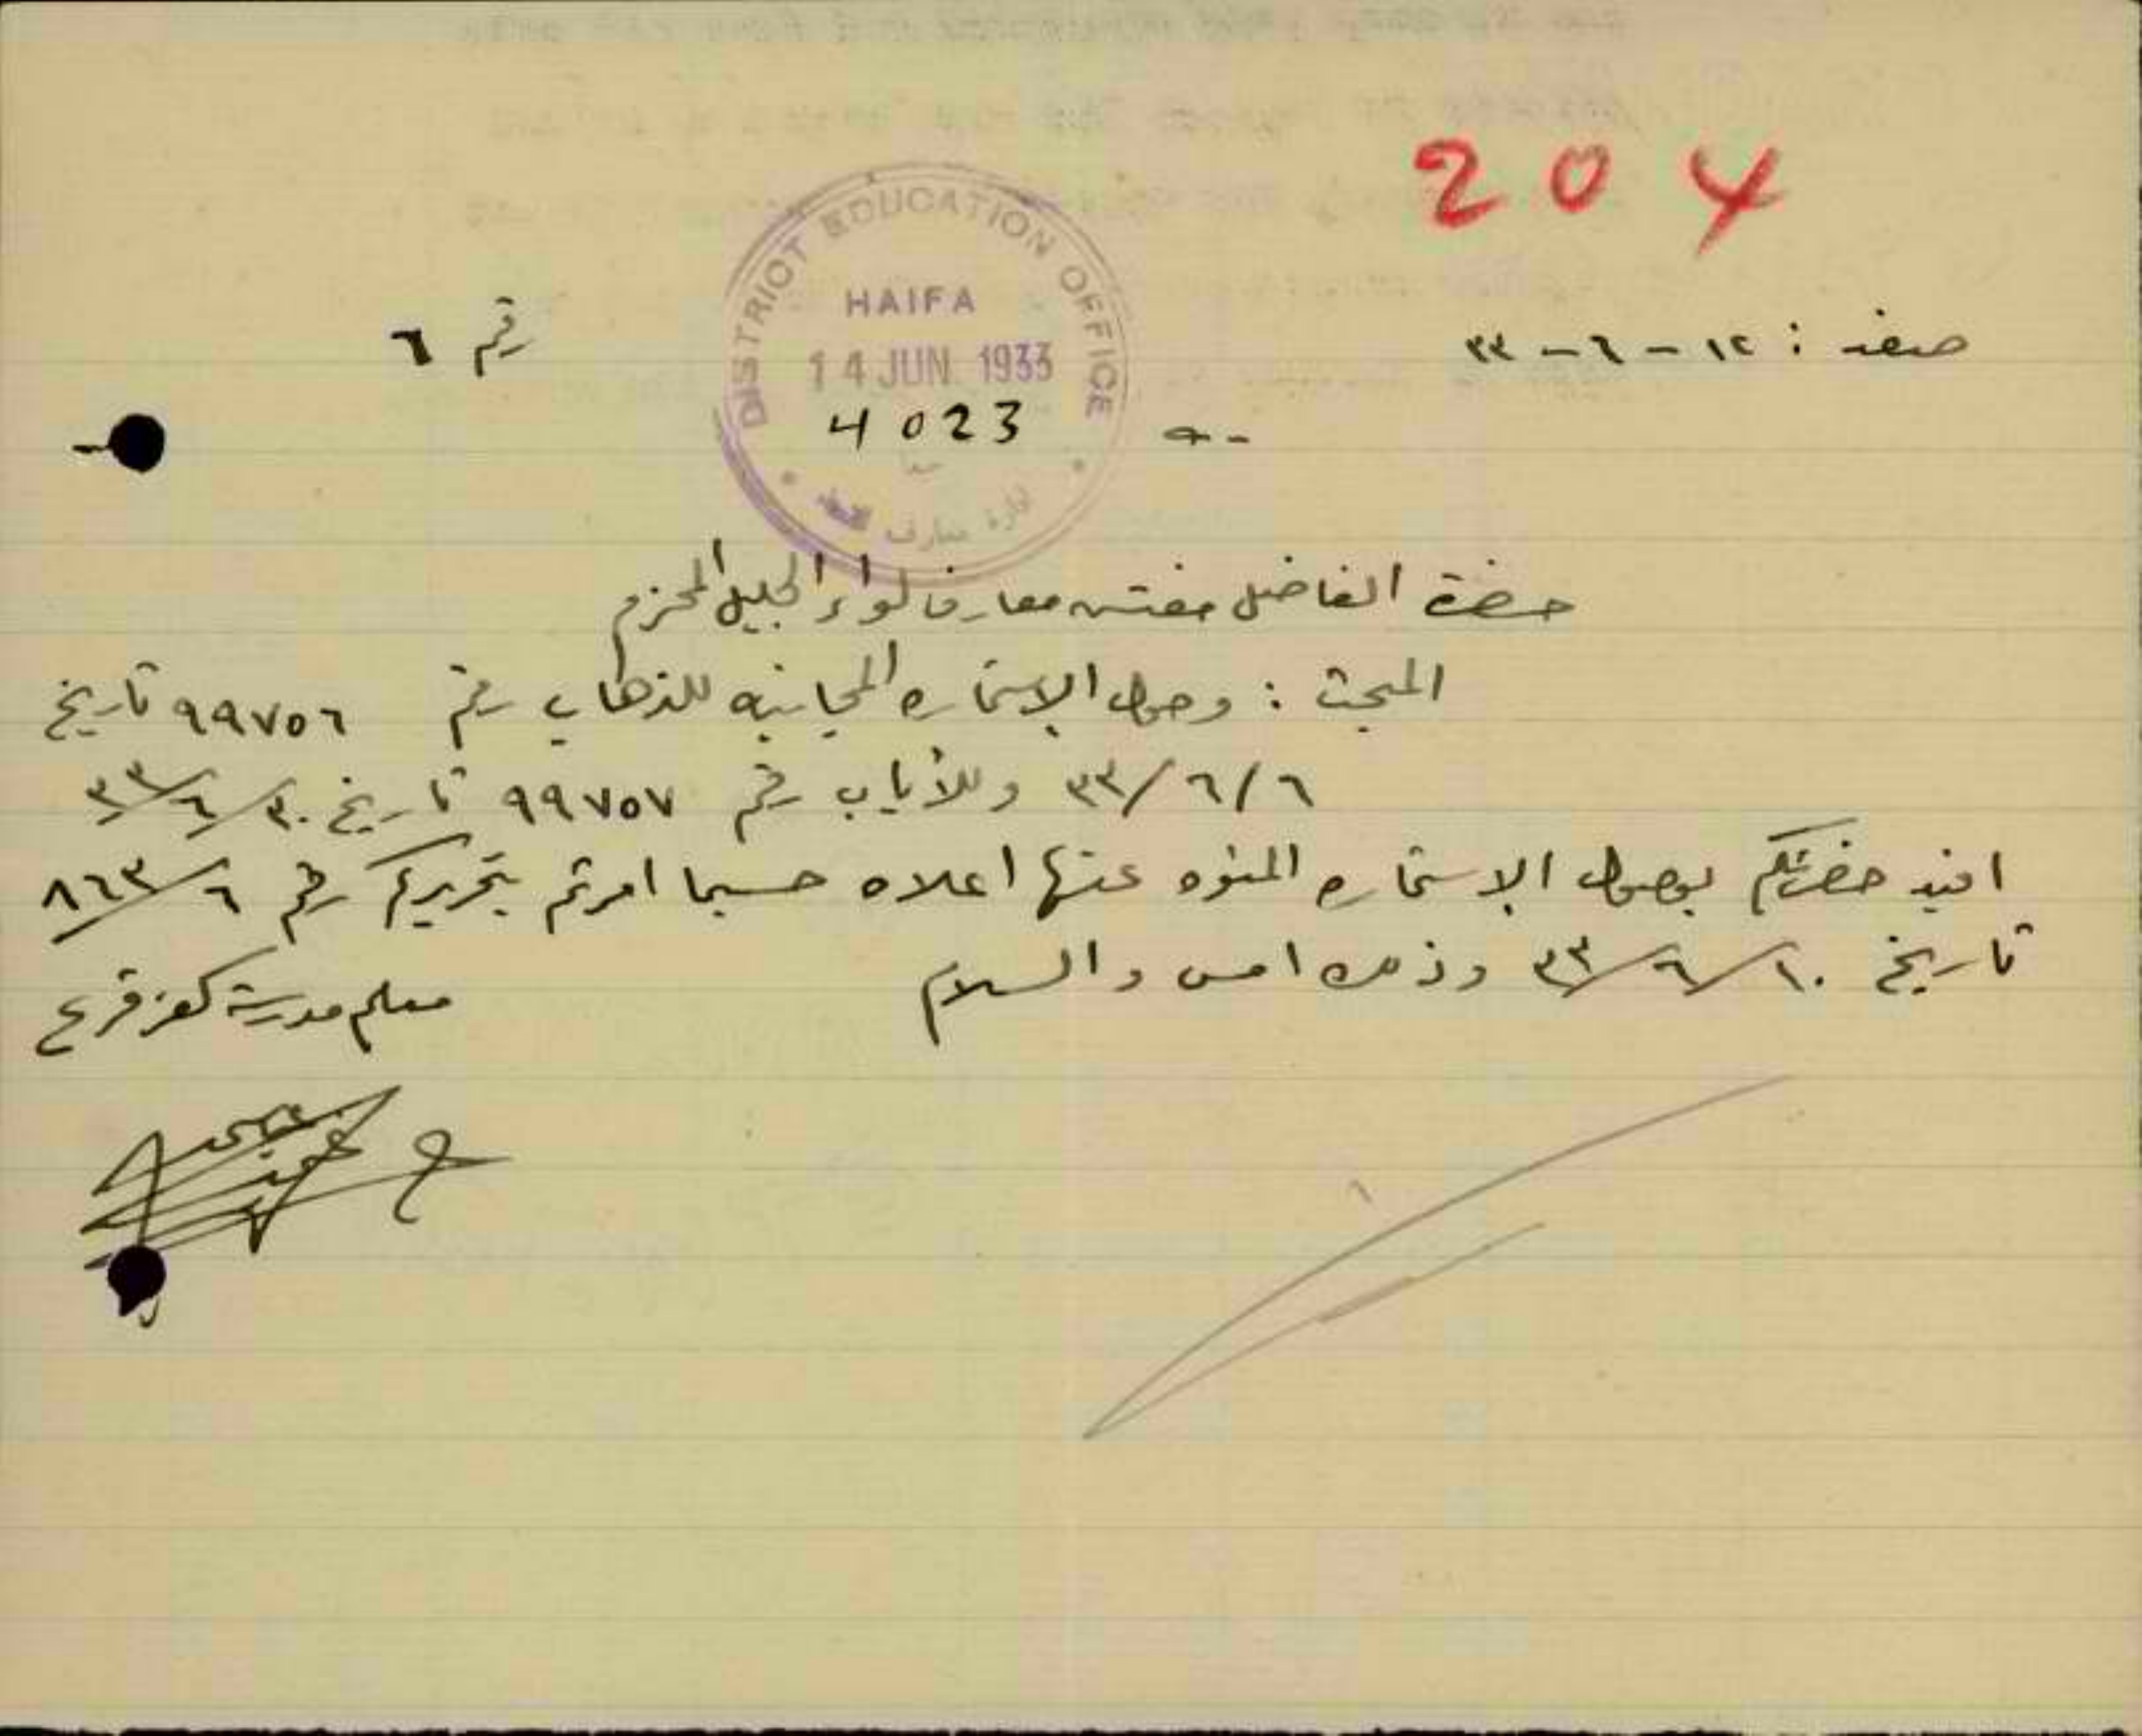 204
صفد : ١٢ - ٦ - ٣٣
رقم ٦
DISTRICT EDUCATION OFFICE
HAIFA
14 JUN. 1933
4023
ادارة معارف
حضرة الفاضل مفتش معارف لواء الجليل المحترم
المبحث : وصول الاستماره المجانيه للذهاب رقم ٩٩٧٥٦ تاريخ
٦/٦/٣٣ وللأياب رقم ٩٩٧٥٧ تاريخ ٣٠/٦/٣٣
افيد حضرتكم بوصول الاستماره المنوه عنها اعلاه حسبما امرتم بتحريركم رقم ٦/٨٦٣
تاريخ ١٠/٦/٣٣ وذلك امس والسلام
معلم مدرسة كفر